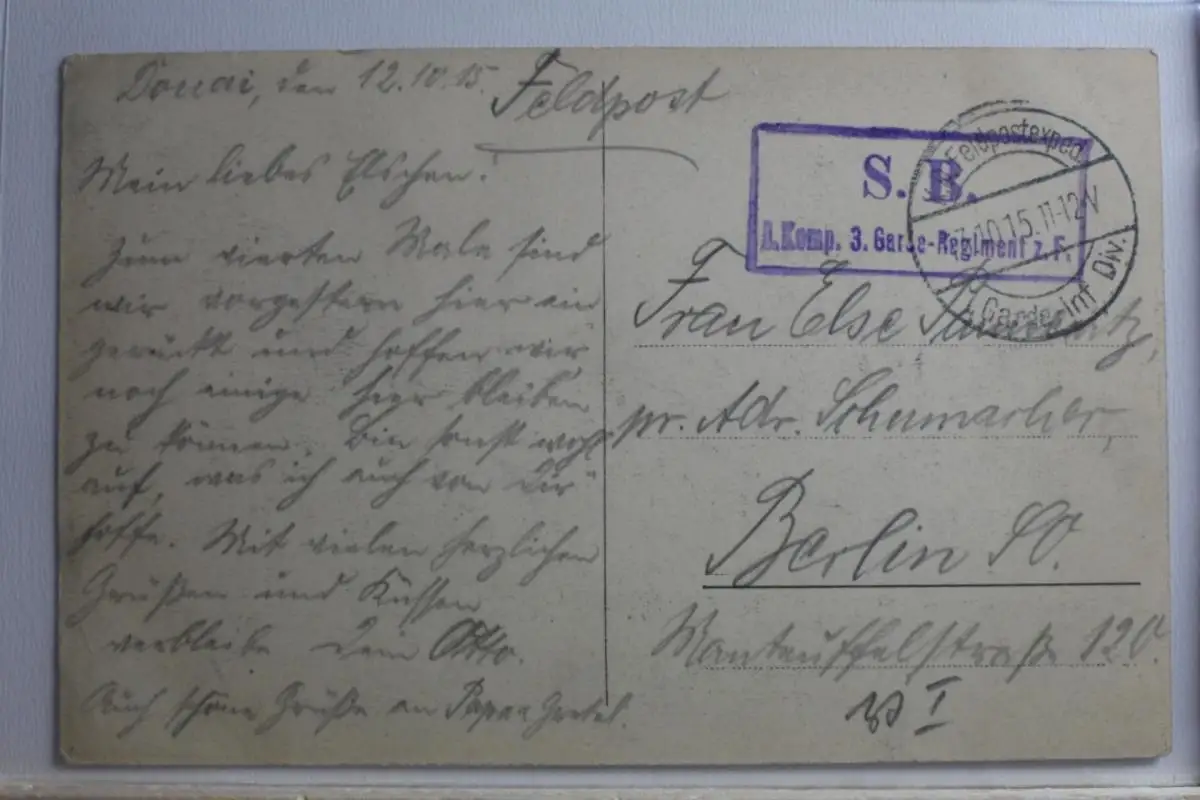 Douai, den 12.10.15.
Feldpost
Mein liebes Elschen!
Zum vierten Male sind
wir vorgestern hier ein
gerückt und hoffen wir
noch einige hier bleiben
zu können. Bin sonst wohl
auf, was ich auch von Dir
hoffe. Mit vielen herzlichen
Grüßen und Küssen
verbleibe Dein Otto.
Auch schöne Grüße an Papa u Gretel.
S. B.
1. Komp. 3. Garde-Regiment z. F.
Feldpostexped.
10.15.11-12V
1 Garde Inf Div.
Frau Else
pr. Adr. Schumacher,
Berlin SO.
Manteuffelstraße 120.
I